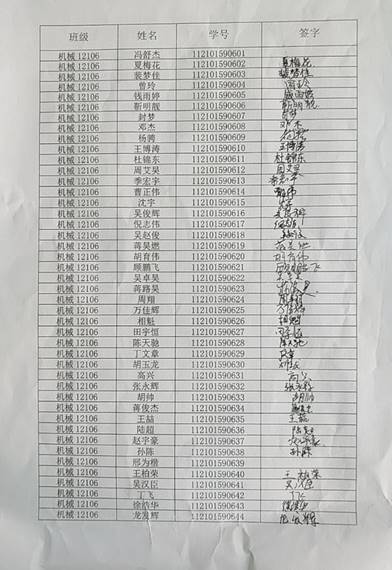 班级 姓名 学号 签字
机械 12106 冯舒杰 112101590601
机械 12106 夏梅花 112101590602 夏梅花
机械 12106 裴梦佳 112101590603 裴梦佳
机械 12106 曾玲 112101590604 曾玲
机械 12106 钱雨婷 112101590605 钱雨婷
机械 12106 靳明靓 112101590606 靳明靓
机械 12106 封梦 112101590607 封梦
机械 12106 邓杰 112101590608 邓杰
机械 12106 杨骋 112101590609
机械 12106 王博涛 112101590610 王博涛
机械 12106 杜锦东 112101590611 杜锦东
机械 12106 周艾昊 112101590612 周艾昊
机械 12106 季宏宇 112101590613 季宏宇
机械 12106 曹正伟 112101590614
机械 12106 沈宇 112101590615 沈宇
机械 12106 吴俊辉 112101590616 吴俊辉
机械 12106 倪志伟 112101590617 倪志伟
机械 12106 吴赵俊 112101590618
机械 12106 蒋昊燃 112101590619
机械 12106 胡育伟 112101590620 胡育伟
机械 12106 顾鹏飞 112101590621 顾鹏飞
机械 12106 吴卓昊 112101590622 吴卓昊
机械 12106 蒋路昊 112101590623
机械 12106 周翔 112101590624 周翔
机械 12106 万佳辉 112101590625 万佳辉
机械 12106 相魁 112101590626 相魁
机械 12106 田宇恒 112101590627 田宇恒
机械 12106 陈天驰 112101590628 陈天驰
机械 12106 丁文章 112101590629
机械 12106 胡玉龙 112101590630
机械 12106 高兴 112101590631 高兴
机械 12106 张永辉 112101590632 张永辉
机械 12106 胡帅 112101590633 胡帅
机械 12106 蒋俊杰 112101590634
机械 12106 王喆 112101590635 王喆
机械 12106 陆超 112101590636 陆超
机械 12106 赵宇豪 112101590637 赵宇豪
机械 12106 孙陈 112101590638 孙陈
机械 12106 邢为楷 112101590639
机械 12106 王柏荣 112101590640 王柏荣
机械 12106 吴汉臣 112101590641 吴汉臣
机械 12106 丁飞 112101590642 丁飞
机械 12106 徐浩华 112101590643
机械 12106 龙发辉 112101590644 龙发辉